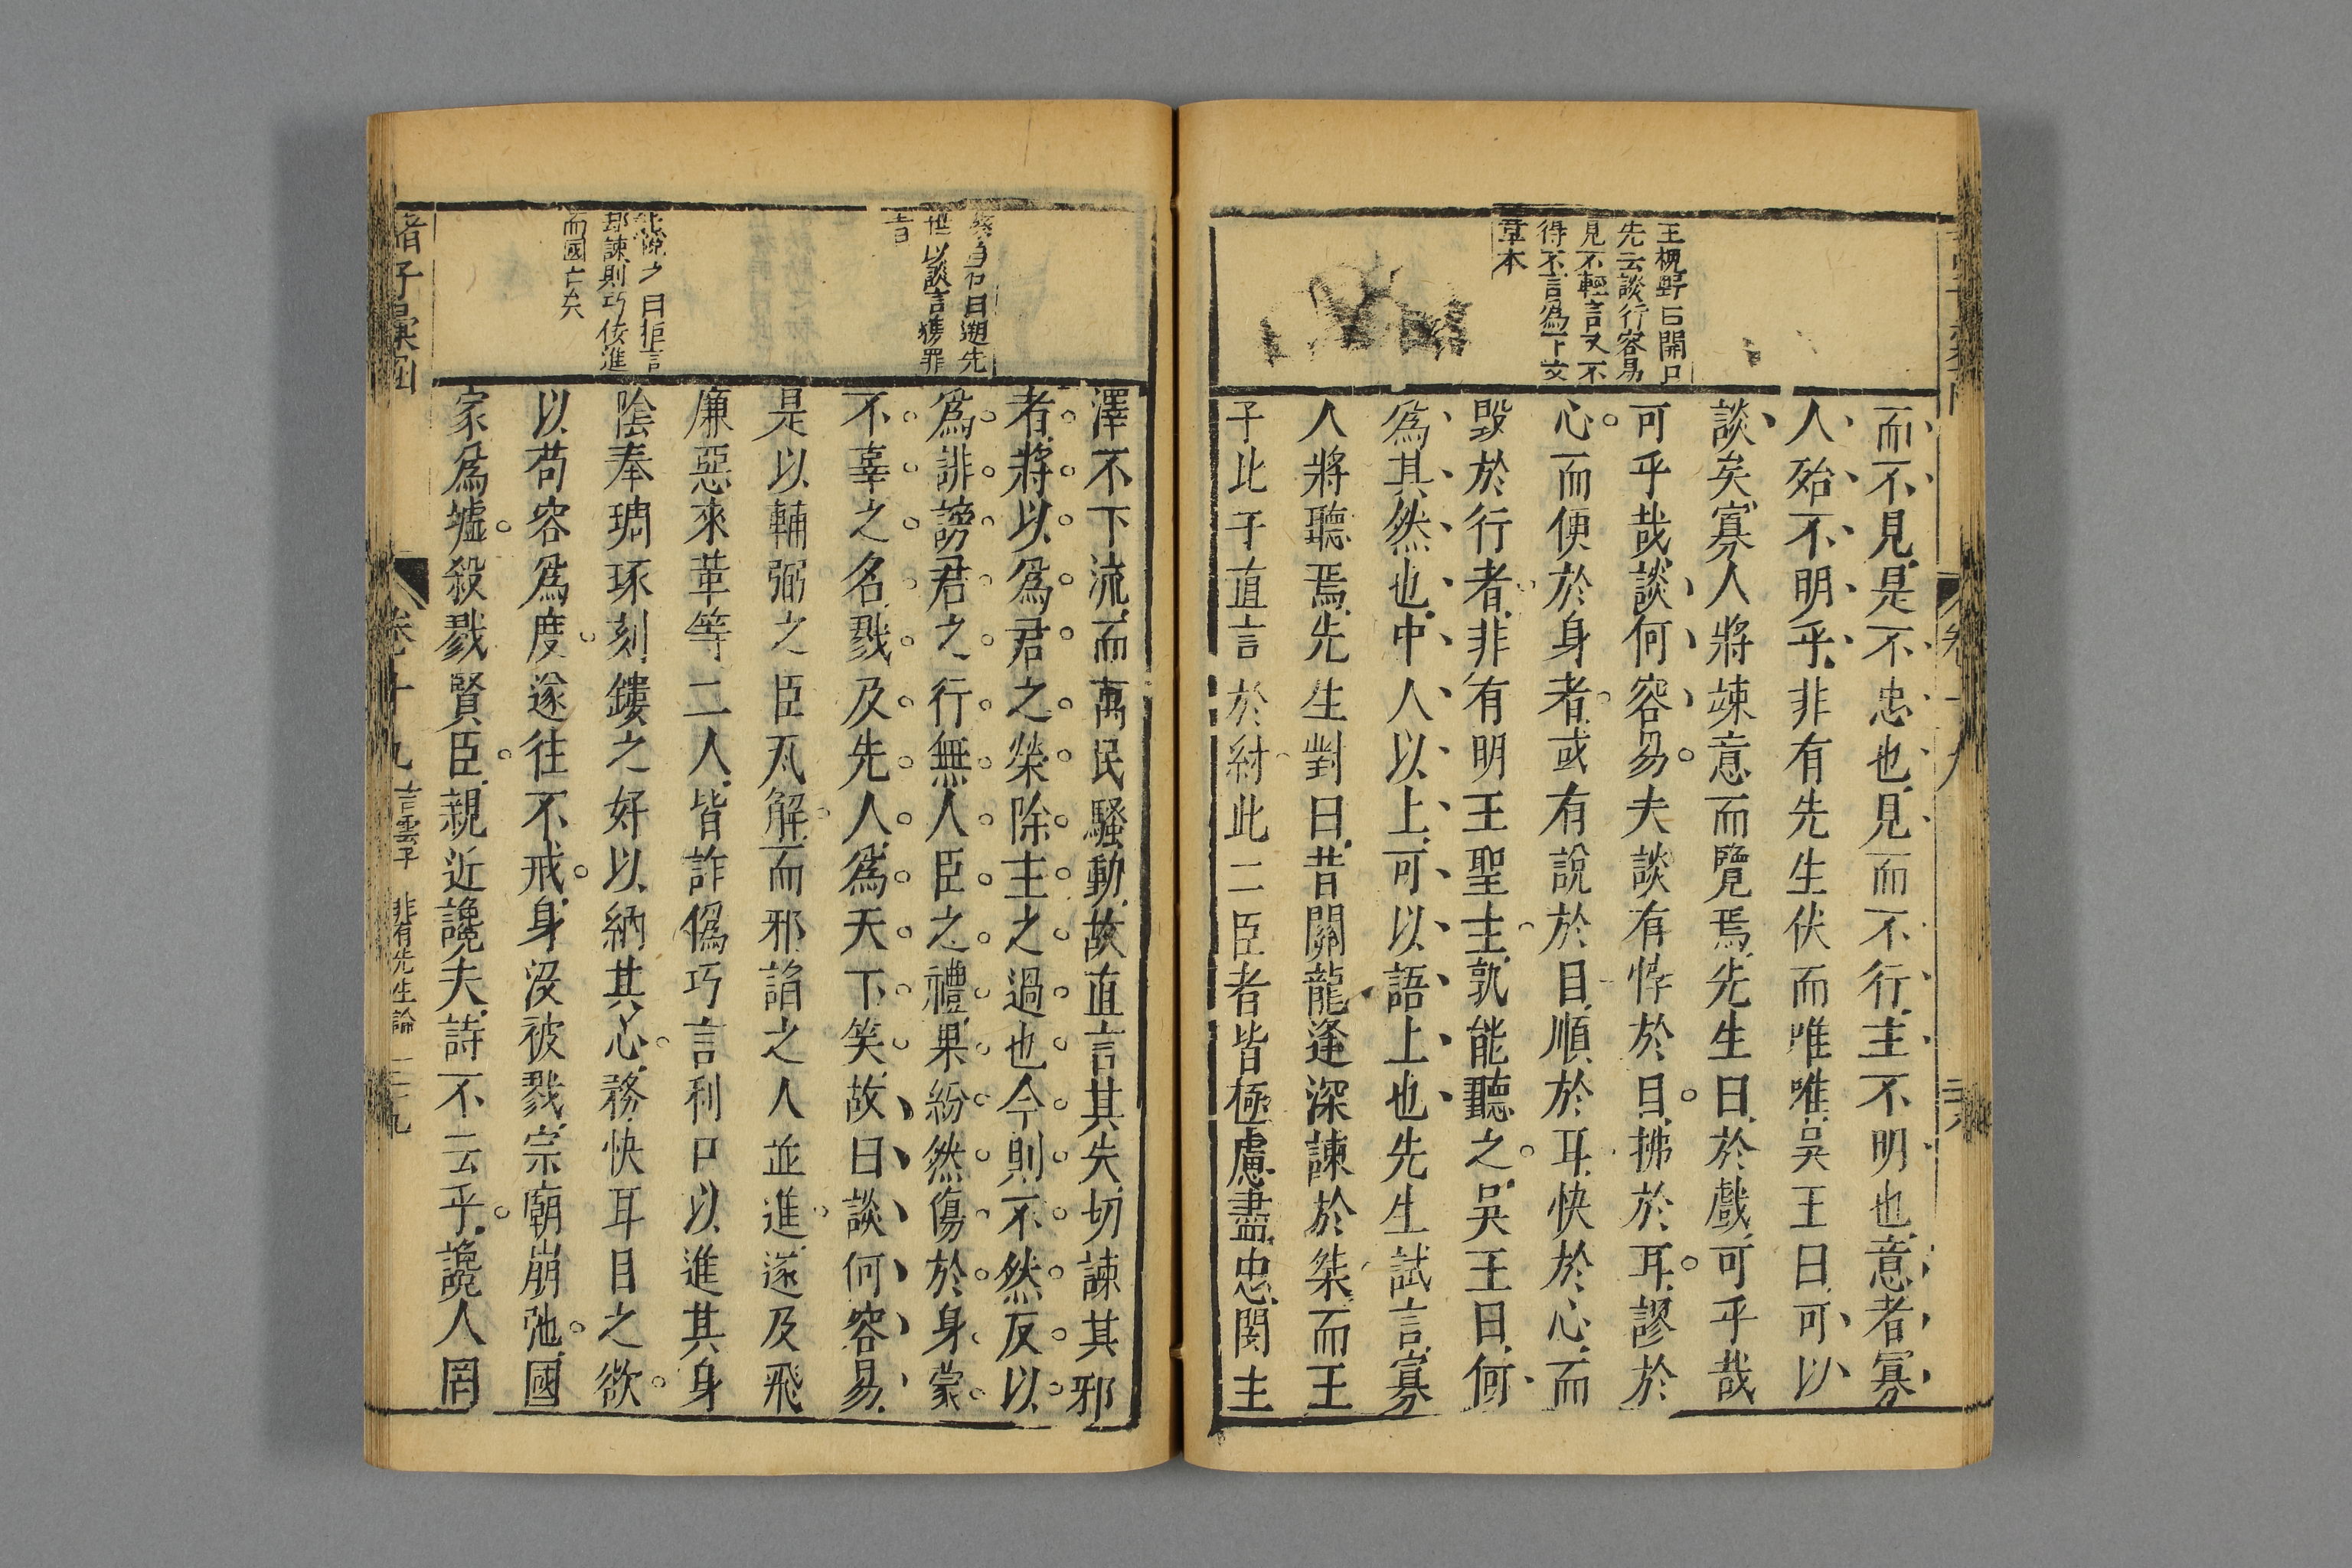 王槐野曰開口
先云談行容易
見不輕言又不
得不言為下文
章本
而不見是不忠也見而不行主不明也意者寡
人殆不明乎非有先生伏而唯唯吳王曰可以
談矣寡人將竦意而覽焉先生曰於戲可乎哉
可乎哉談何容易夫談有悖於目拂於耳謬於
心而便於身者或有說於目順於耳快於心而
毀於行者非有明王聖主孰能聽之吳王曰何
為其然也中人以上可以語上也先生試言寡
人將聽焉先生對曰昔關龍逢深諫於桀而王
子比干直言於紂此二臣者皆極慮盡忠閔主
曰遡先
世以談言獲罪
者
之曰拒言
却諫則巧佞進
而國亡矣
澤不下流而萬民騷動故直言其失切諫其邪
者將以為君之榮除主之過也今則不然反以
為誹謗君之行無人臣之禮果紛然傷於身蒙
不辜之名戮及先人為天下笑故曰談何容易
是以輔弼之臣瓦解而邪諂之人並進遂及飛
廉惡來革等二人皆詐偽巧言利口以進其身
陰奉琱琢刻鏤之好以納其心務快耳目之欲
以苟容為度遂往不戒身沒被戮宗廟崩弛國
家為墟殺戮賢臣親近讒夫詩不云乎讒人罔
諸子彙函
卷十九
吉雲子 非有先生論 二十九